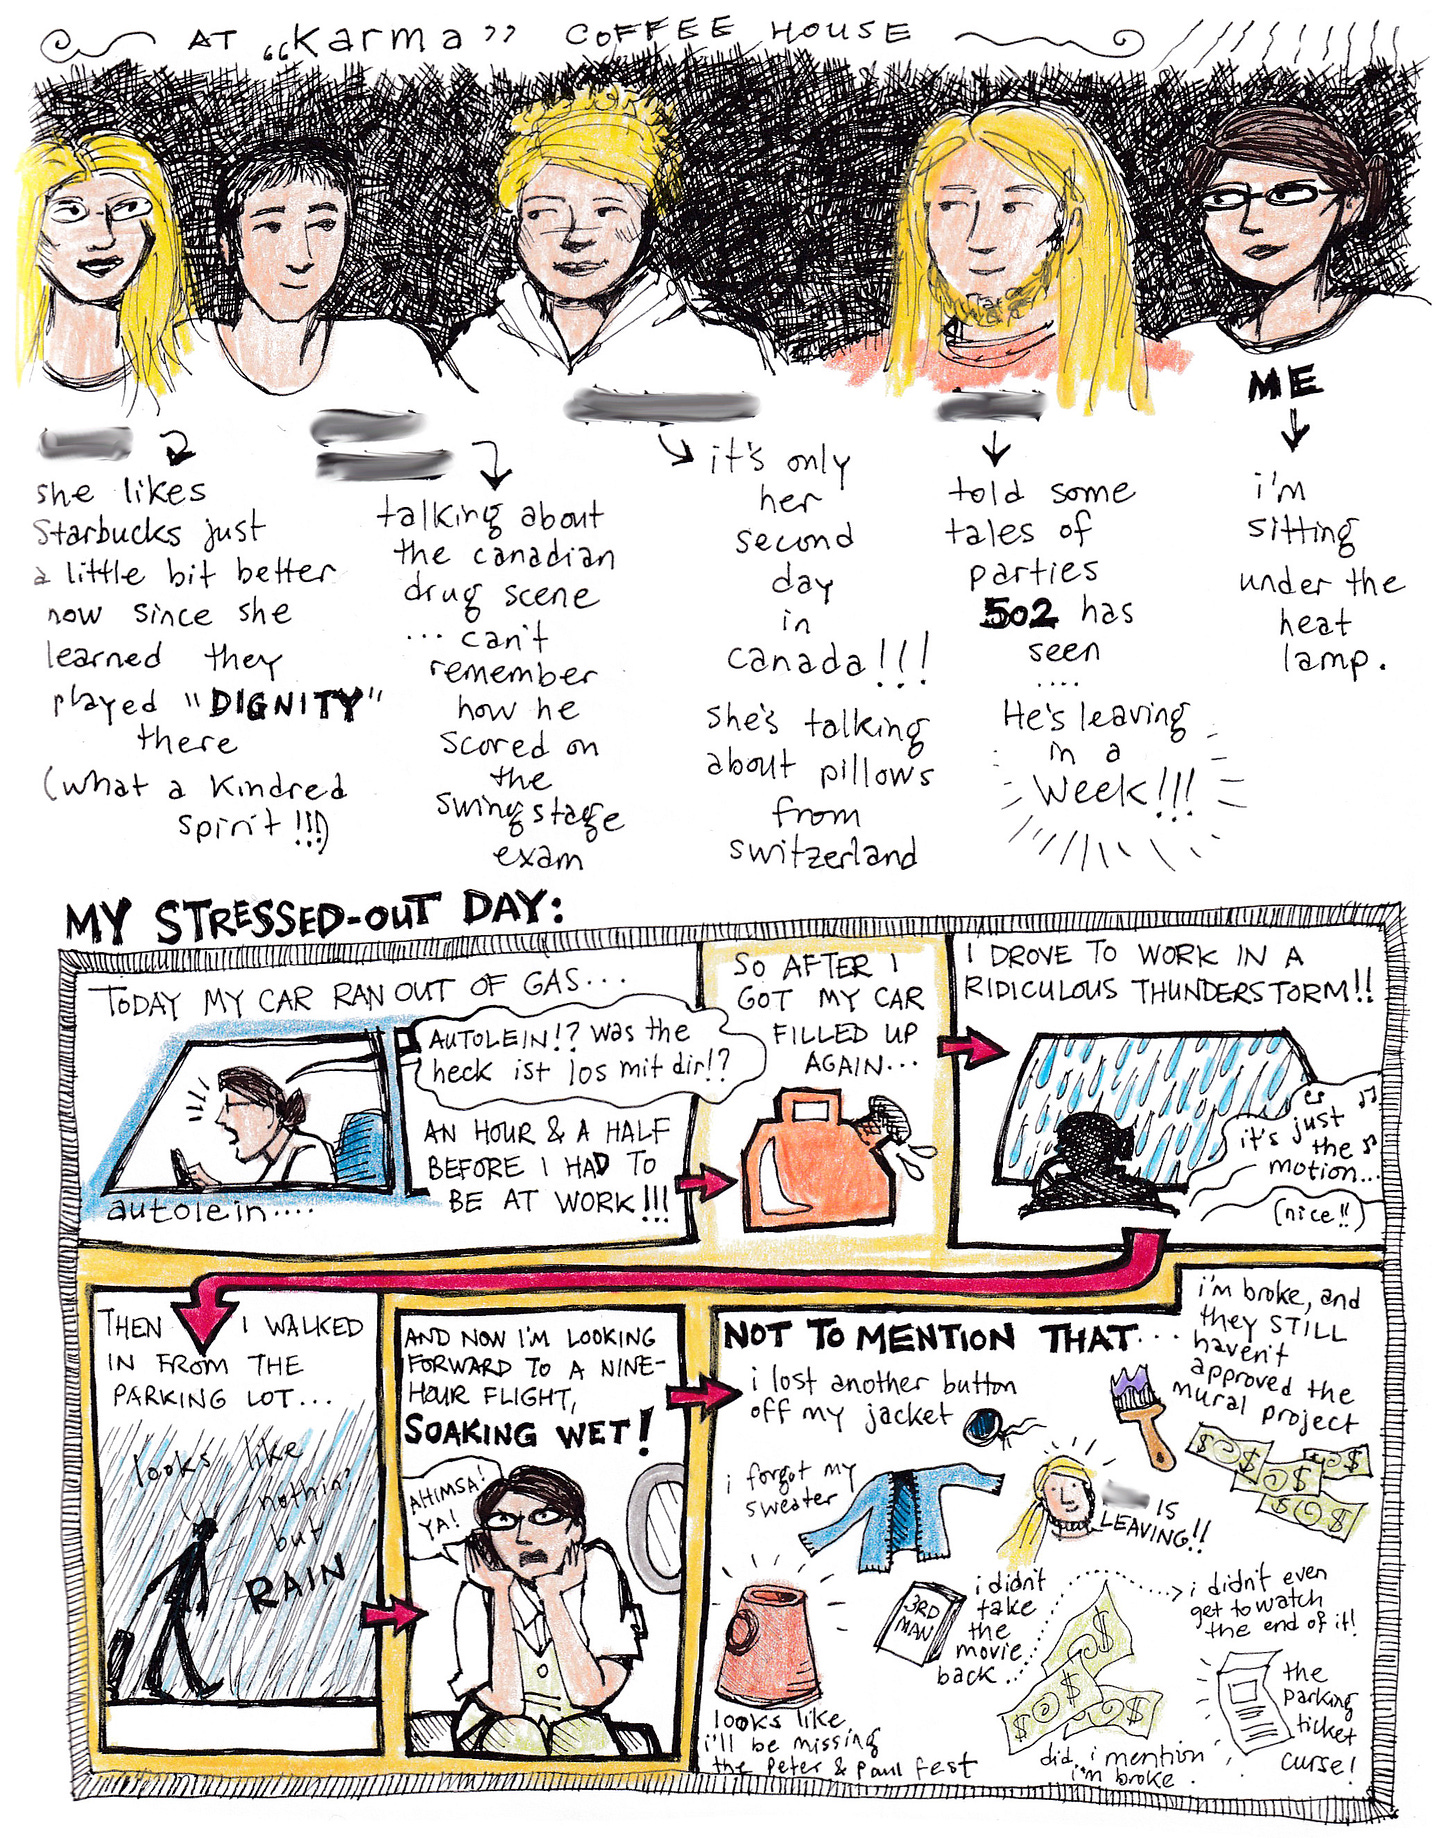 AT "Karma" COFFEE HOUSE
ME
she likes
Starbucks just
a little bit better
now since she
learned they
played "DIGNITY"
there
(what a kindred
spirit!!!)
talking about
the canadian
drug scene
... can't
remember
how he
scored on
the
swingstage
exam
it's only
her
second
day
in
canada!!!
she's talking
about pillows
from
switzerland
told some
tales of
parties
502 has
seen
....
He's leaving
in a
Week!!!
i'm
sitting
under the
heat
lamp.
MY STRESSED-OUT DAY:
TODAY MY CAR RAN OUT OF GAS...
AUTOLEIN!? was the
heck ist los mit dir!?
AN HOUR & A HALF
BEFORE I HAD TO
BE AT WORK!!!
autolein....
SO AFTER I
GOT MY CAR
FILLED UP
AGAIN...
I DROVE TO WORK IN A
RIDICULOUS THUNDERSTORM!!
it's just
the
motion...
(nice!!)
THEN I WALKED
IN FROM THE
PARKING LOT...
looks like
nothin'
but
RAIN
AND NOW I'M LOOKING
FORWARD TO A NINE-
HOUR FLIGHT,
SOAKING WET!
AHIMSA!
YA!
NOT TO MENTION THAT...
i'm broke, and
they STILL
haven't
approved the
mural project
i lost another button
off my jacket
i forgot my
sweater
IS
LEAVING!!
3RD
MAN
i didn't
take
the
movie
back...
i didn't even
get to watch
the end of it!
looks like
i'll be missing
the Peter & Paul Fest
did i mention
i'm broke.
the
parking
ticket
curse!